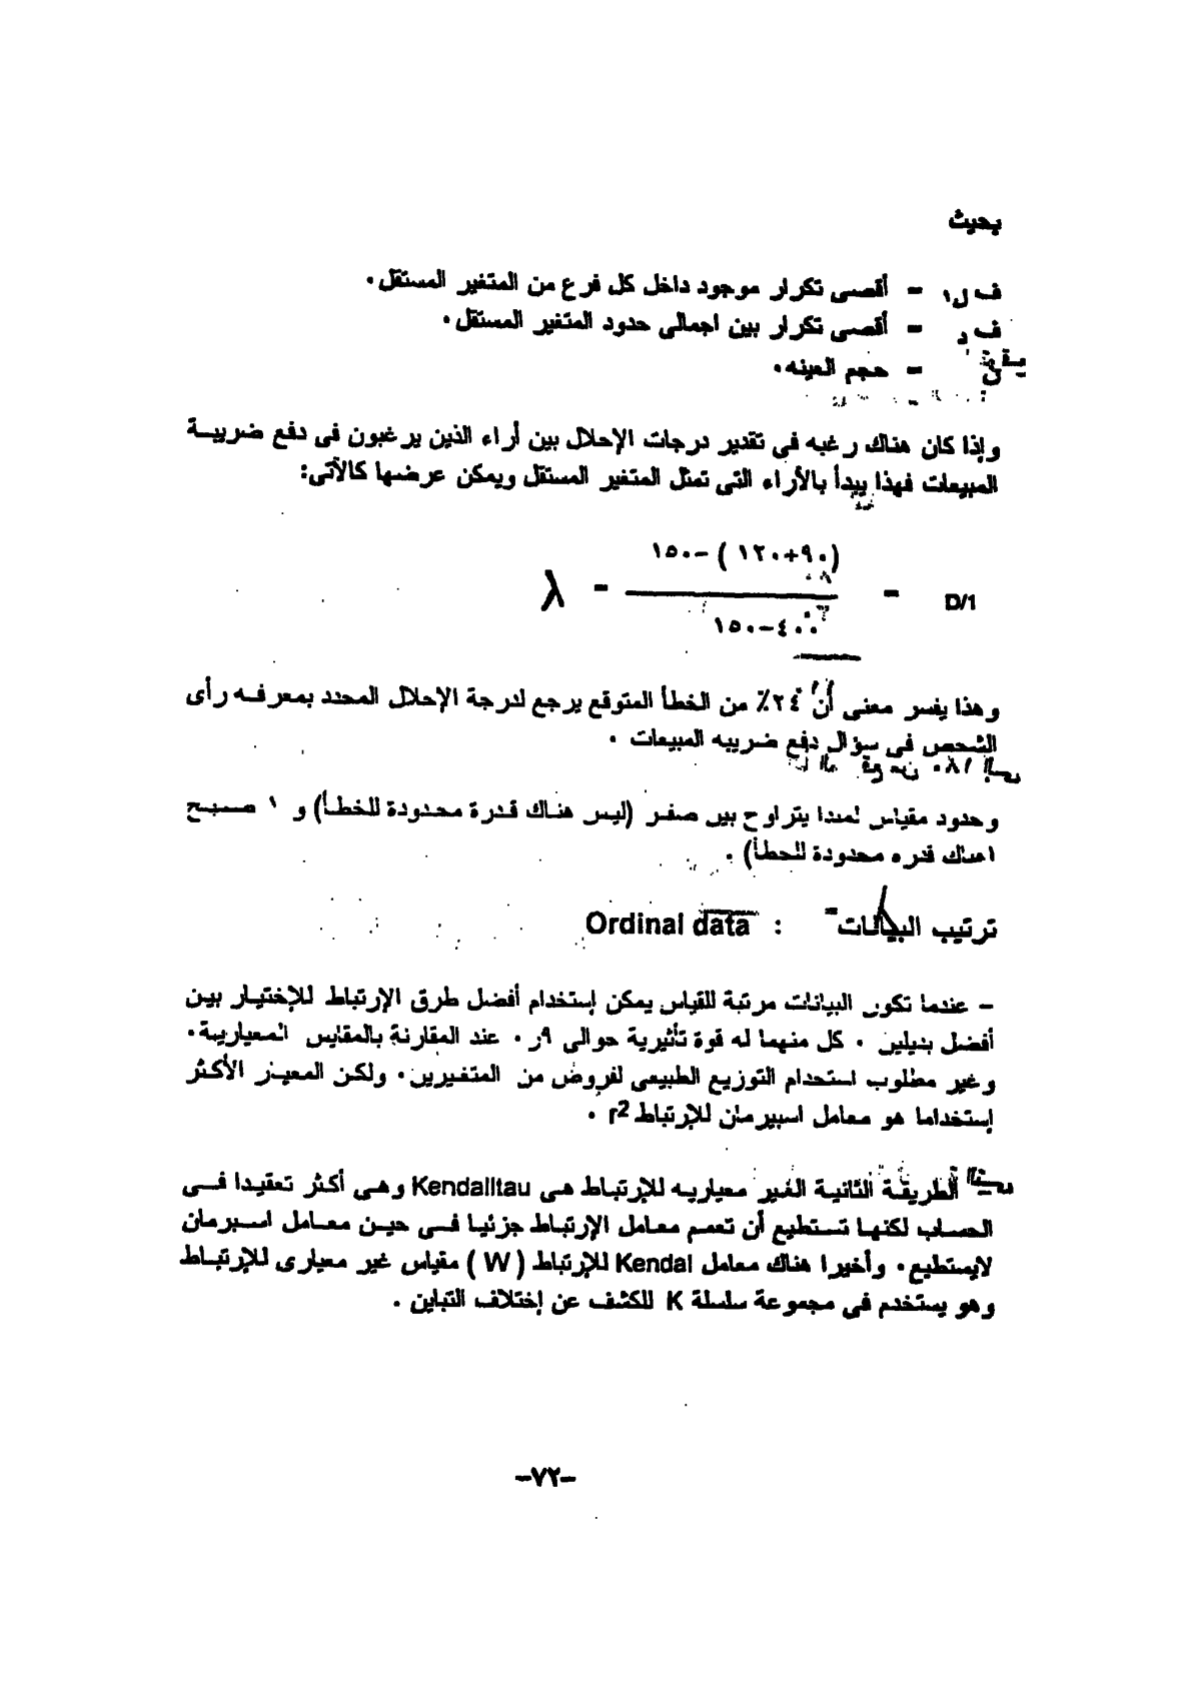 بحيث
ف ل١ = أقصى تكرار موجود داخل كل فرع من المتغير المستقل٠
ف د = أقصى تكرار بين اجمالى حدود المتغير المستقل٠
ن = حجم العينه٠
وإذا كان هناك رغبه فى تقدير درجات الإحلال بين أراء الذين يرغبون فى دفع ضريبة
المبيعات فهذا يبدأ بالأراء التى تمثل المتغير المستقل ويمكن عرضها كالآتى:
(٩٠+١٢٠ ) –١٥٠
D/1 = = λ
٤٠٠–١٥٠
وهذا يفسر معنى أن ٢٤٪ من الخطأ المتوقع يرجع لدرجة الإحلال المحدد بمعرفه رأى
الشخص فى سؤال دفع ضريبه المبيعات ٠
وحدود مقياس لمبدا يتراوح بين صفر (ليس هناك قدرة محدودة للخطأ) و ١ صحيح
(هناك قدره محدودة للخطأ) ٠
ترتيب البيانات : Ordinal data
– عندما تكون البيانات مرتبة للقياس يمكن إستخدام أفضل طرق الإرتباط للإختيار بين
أفضل بديلين ٠ كل منهما له قوة تأثيرية حوالى ٩ر ٠ عند المقارنة بالمقايس المعياريية٠
وغير مطلوب استخدام التوزيع الطبيعى لفروض من المتغيرين٠ ولكن المعيار الأكثر
إستخداما هو معامل اسبيرمان للإرتباط r2 ٠
الطريقة الثانية الغير معياريه للإرتباط هى Kendalltau وهى أكثر تعقيدا فى
الحساب لكنها تستطيع أن تعمم معامل الإرتباط جزئيا فى حين معامل اسبرمان
لايستطيع٠ وأخيرا هناك معامل Kendal للإرتباط ( W ) مقياس غير معيارى للإرتباط
وهو يستخدم فى مجموعة سلسلة K للكشف عن إختلاف التباين ٠
–٧٢–